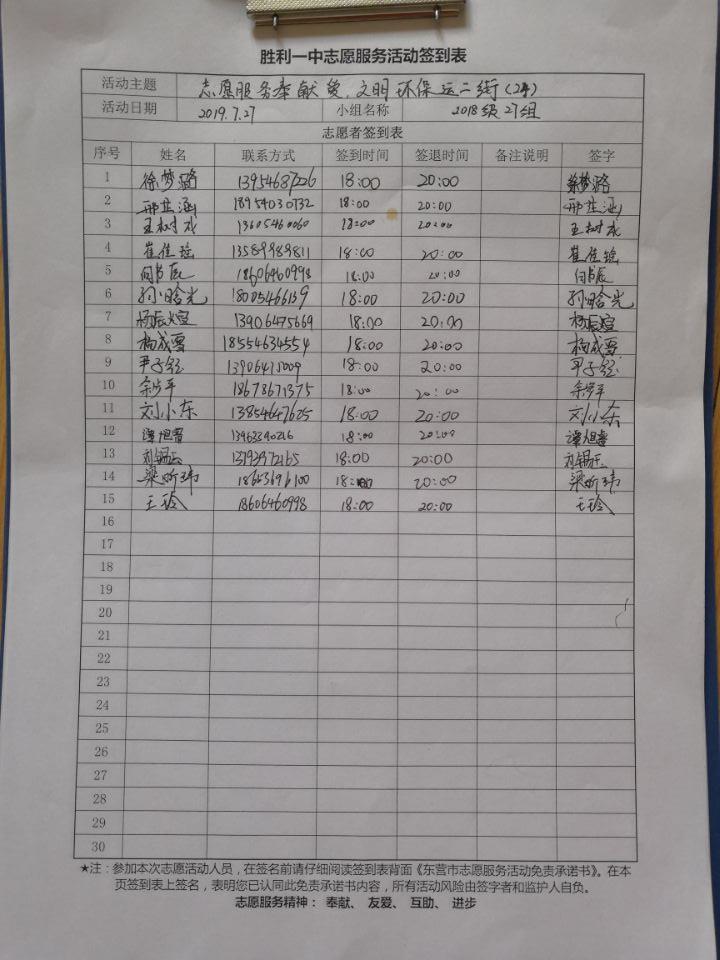 胜利一中志愿服务活动签到表
活动主题 志愿服务奉献爱,文明环保运二街(24)
活动日期 2019.7.27 小组名称 2018级27组
志愿者签到表
序号 姓名 联系方式 签到时间 签退时间 备注说明 签字
1 徐梦璐 13954687226 18:00 20:00 徐梦璐
2 邢芷涵 18954030732 18:00 20:00 邢芷涵
3 王树成 13605460060 18:00 20:00 王树成
4 崔佳 13589989811 18:00 20:00 崔佳
5 18606460998 18:00 20:00
6 孙晗光 18005466139 18:00 20:00 孙晗光
7 杨振煊 13906475669 18:00 20:00 杨振煊
8 杨成雪 18554634554 18:00 20:00 杨成雪
9 尹子 18:00 20:00 尹子
10 余岁平 18678671375 18:00 20:00 余岁平
11 刘小东 13854647625 18:00 20:00 刘小东
12 谭旭春 13963390216 18:00 20:00 谭旭春
13 刘锡 13793972165 18:00 20:00 刘锡
14 梁昕玮 18653696100 18:00 20:00 梁昕玮
15 王玲 18606460998 18:00 20:00 王玲
16
17
18
19
20
21
22
23
24
25
26
27
28
29
30
★注:参加本次志愿活动人员,在签名前请仔细阅读签到表背面《东营市志愿服务活动免责承诺书》。在本
页签到表上签名,表明您已认同此免责承诺书内容,所有活动风险由签字者和监护人自负。
志愿服务精神: 奉献、 友爱、 互助、 进步